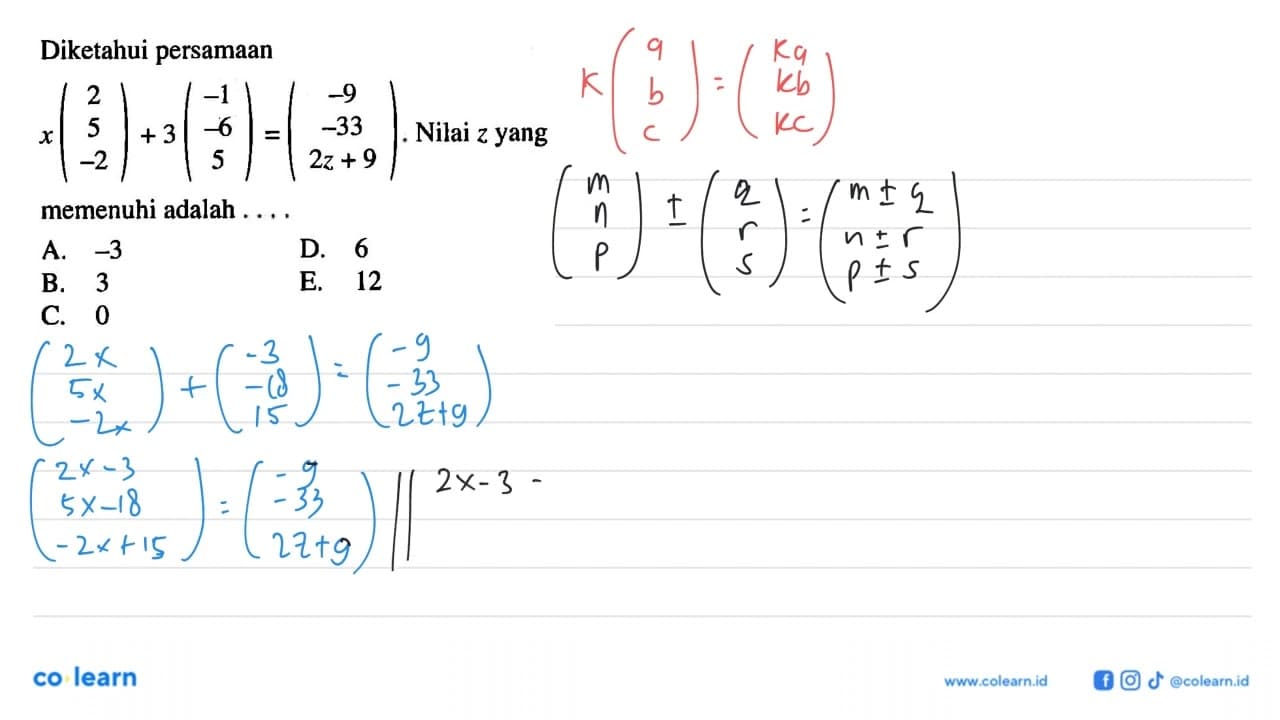 Diketahui persamaan
x(2 5 -2) + 3(-1 -6 5) = (-9 -33 2z + 9). Nilai z yang
memenuhi adalah . . . .
A. -3 D. 6
B. 3 E. 12
C. 0
K(a b c) = (Ka Kb KC)
(m n p) ± (q r s) = (m ± q n ± r p ± s)
(2x 5x -2x) + (-3 -18 15) = (-9 -33 2z+9)
(2x-3 5x-18 -2x+15) = (-9 -33 2z+9) || 2x-3 -
co learn
www.colearn.id @colearn.id